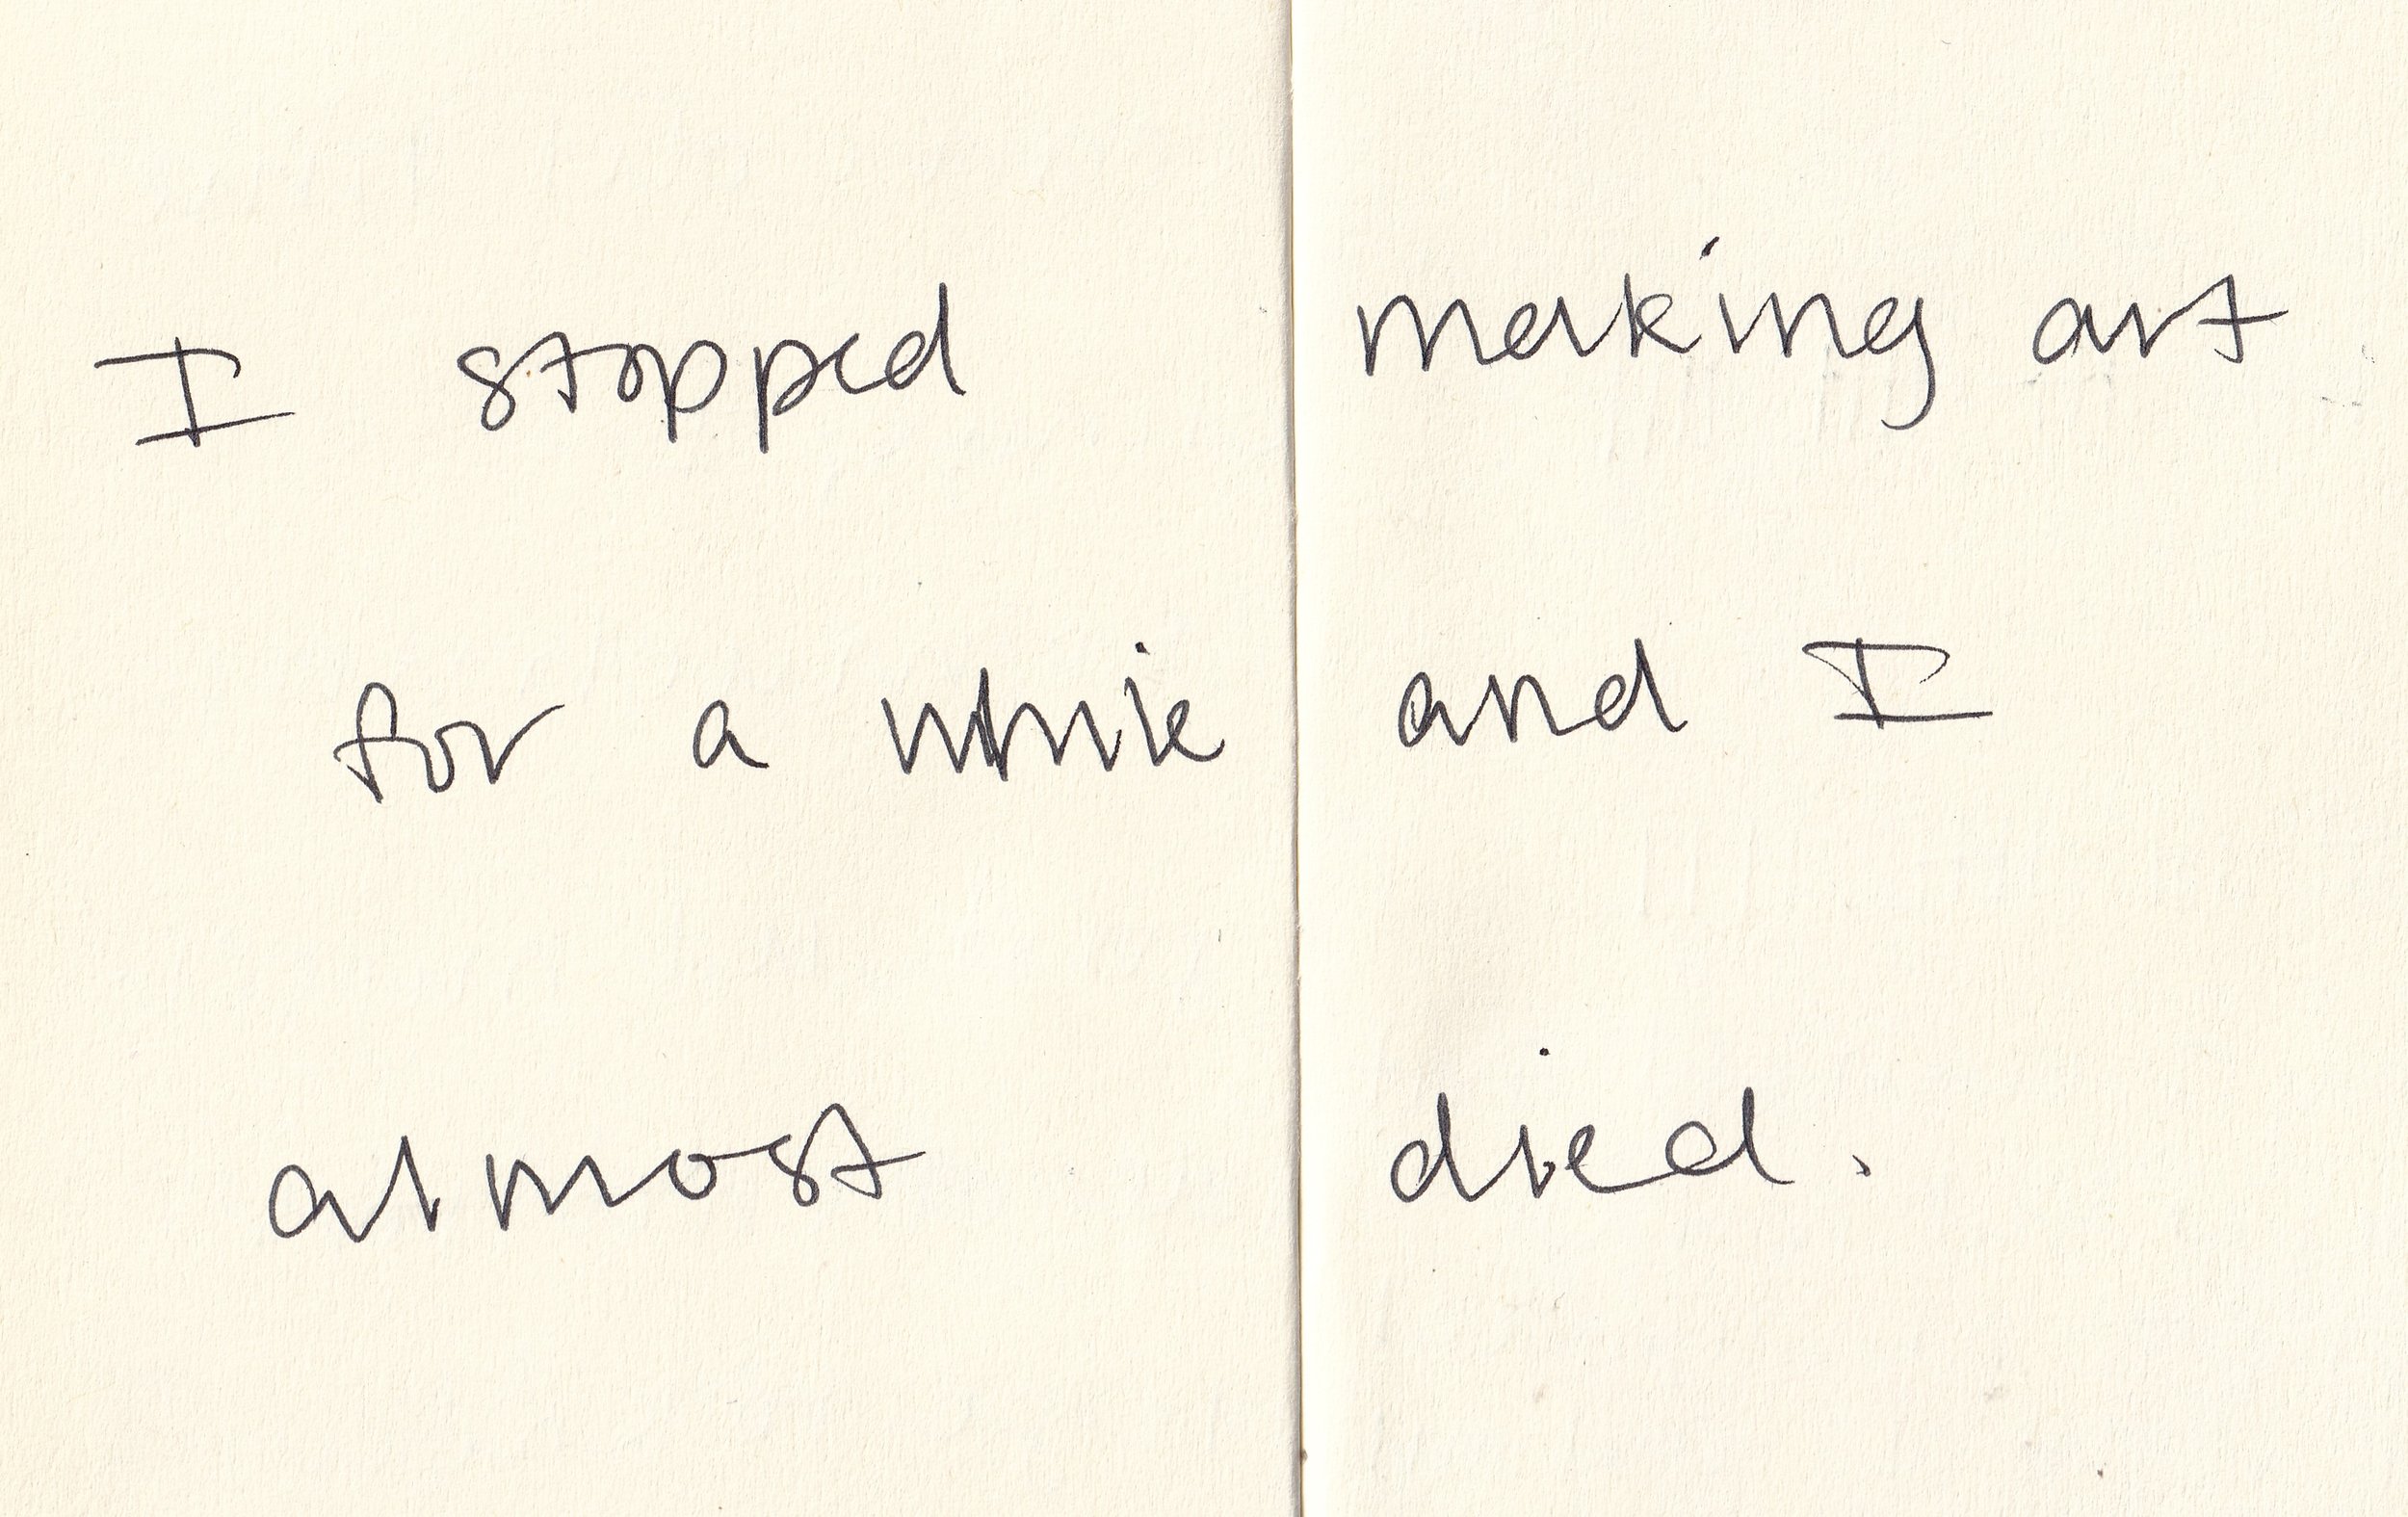 I stopped making art
for a while and I
almost died.